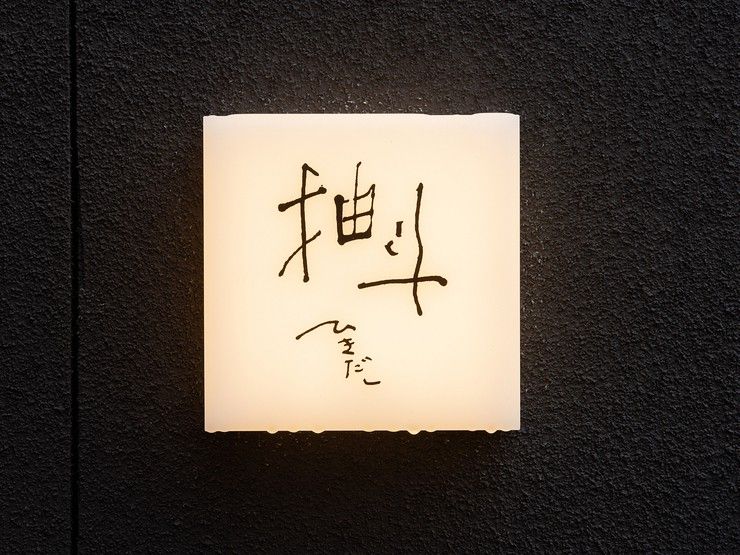 抽斗
ひきだし